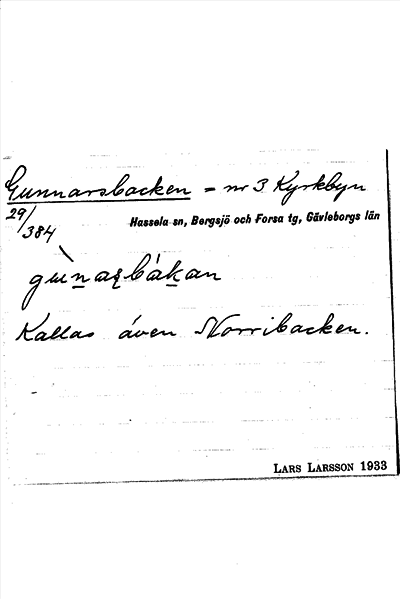 Gunnarsbacken = nr 3 Kyrkbyn
29/384
Hassela sn, Bergsjö och Forsa tg, Gävleborgs län
Kallas även Norribacken.
LARS LARSSON 1933